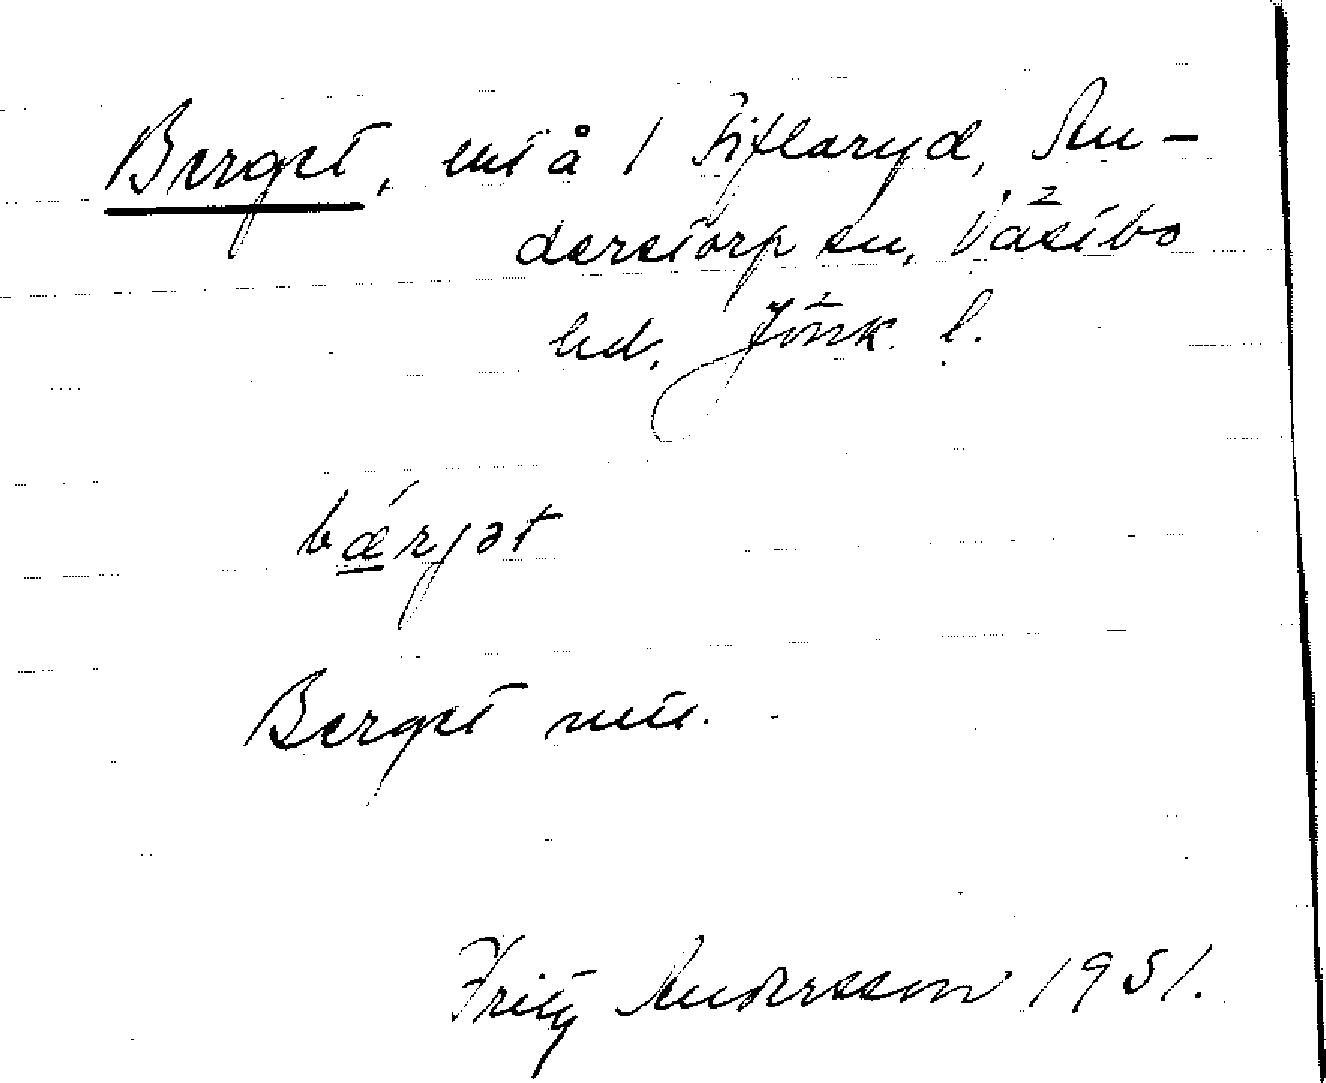 Berget, å 1 Fiflaryd, An-
derstorp sn, Västbo
hd, Jönk. l.
bǽrjət
Berget
Fritz Andersson 1951.